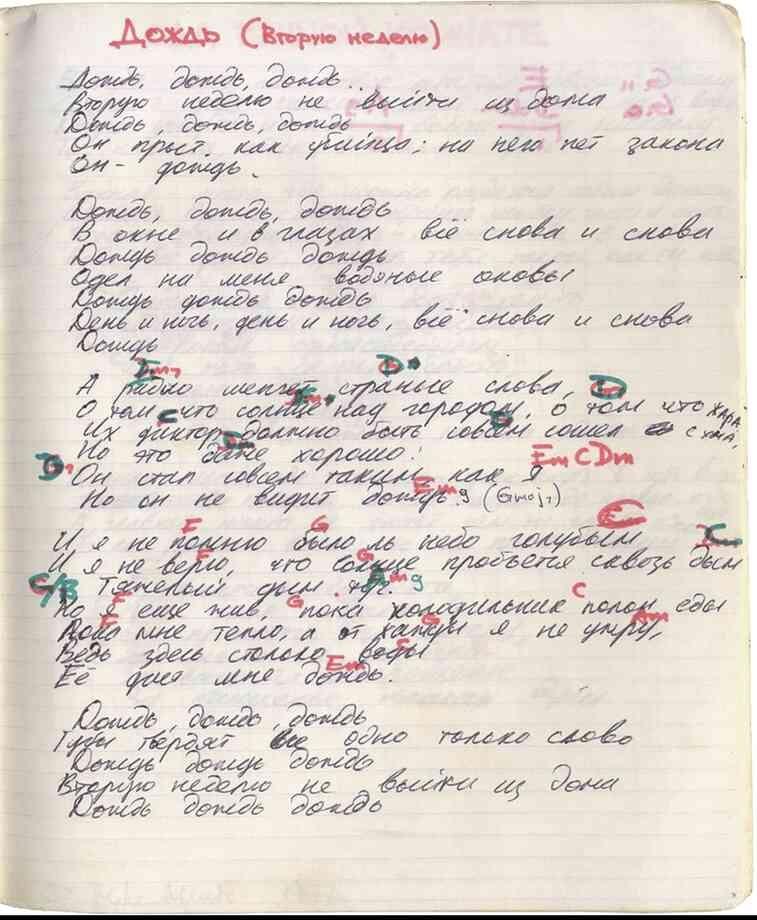 Дождь (Вторую неделю)
Дождь, дождь, дождь..
Вторую неделю не выйти из дома
Дождь, дождь, дождь
Он прост, как убийца; на него нет закона
Он - дождь.
Дождь, дождь, дождь
В окне и в глазах всё снова и снова
Дождь дождь дождь
Одел на меня водяные оковы
Дождь дождь дождь
День и ночь, день и ночь, всё снова и снова
Дождь
Em7 D
А радио шепчет страные слова,
О том что солнце над городом, о том что жара
Их диктор должно быть совсем сошел с ума,
Но это даже хорошо!
Em C Dm
Он стал совсем таким как я
Но он не видит дождь. Em9 (Gmaj7)
F G C
И я не помню было ль небо голубым
F G
И я не верю, что солнце пробьется сквозь дым
C/B Тяжелый дым Am9
F G C
Но я еще жив, пока холодильник полон еды
F G Am
Пока мне тепло, а от жажды я не умру,
Ведь здесь столько воды
Em
Её дает мне дождь.
Дождь, дождь, дождь
Тучи твердят все одно только слово
Дождь дождь дождь
Вторую неделю не выйти из дома
Дождь дождь дождь